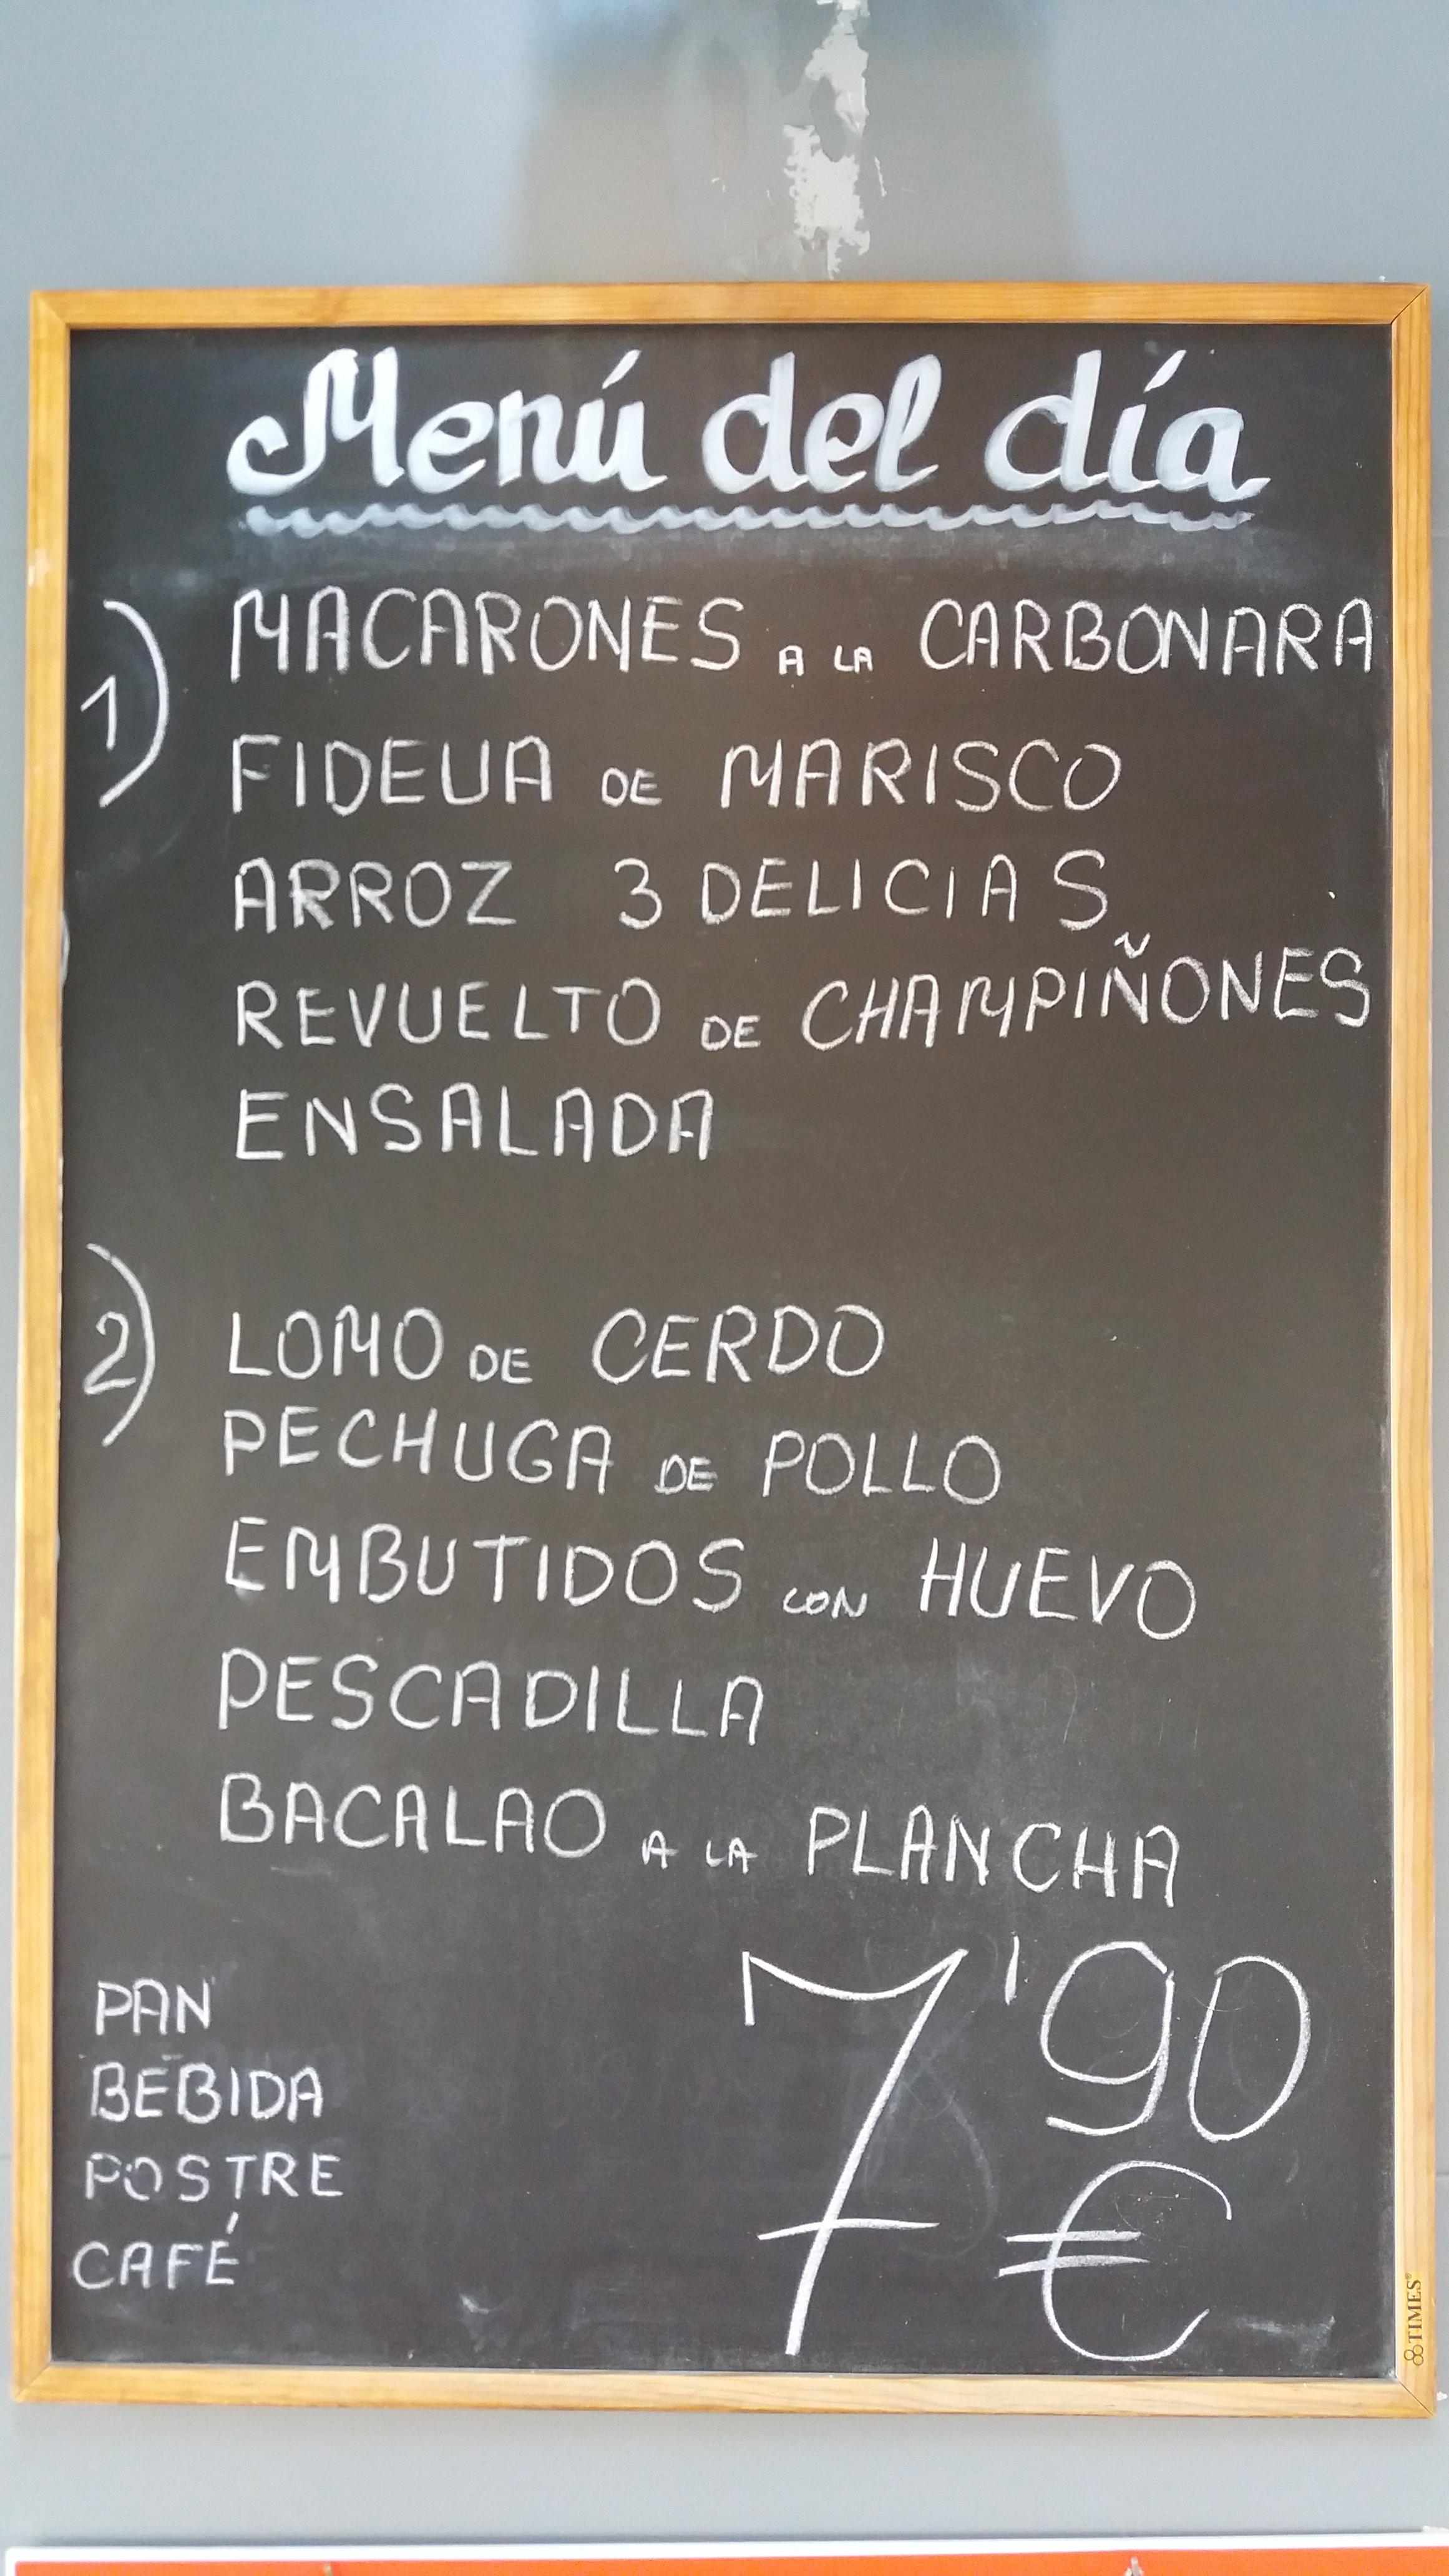 Menú del día
1) MACARONES A LA CARBONARA
FIDEUA DE MARISCO
ARROZ 3 DELICIAS
REVUELTO DE CHAMPIÑONES
ENSALADA
2) LOMO DE CERDO
PECHUGA DE POLLO
EMBUTIDOS CON HUEVO
PESCADILLA
BACALAO A LA PLANCHA
PAN
BEBIDA
POSTRE
CAFÉ
7'90
€
TIMES®